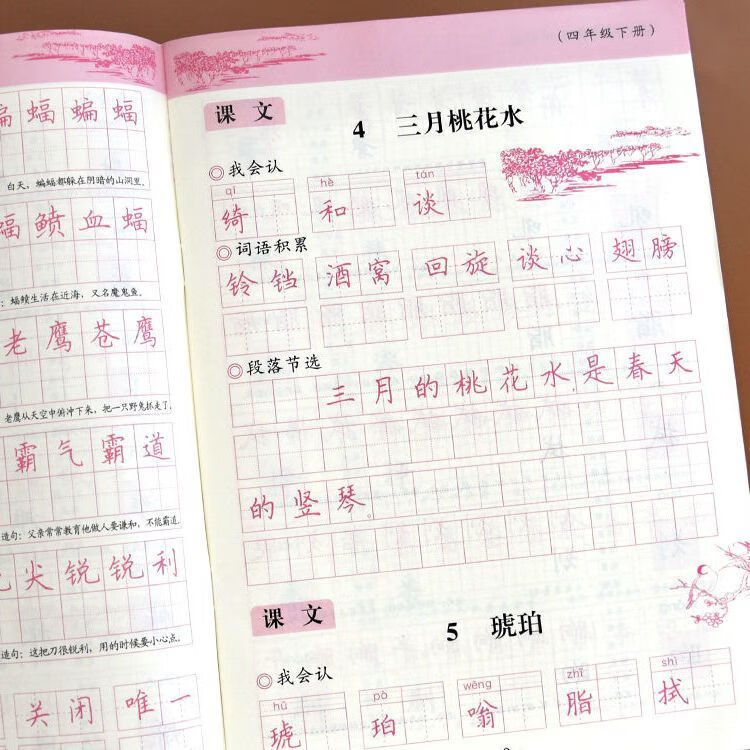 蝙 蝠 蝙 蝠
白天，蝙蝠都躲在阴暗的山洞里。
蝠 鲼 血 蝠
：蝠鲼生活在近海，又名魔鬼鱼。
老 鹰 苍 鹰
老鹰从天空中俯冲下来，把一只野兔抓走了。
霸 气 霸 道
造句：父亲常常教育他做人要谦和，不能霸道。
尖 锐 锐 利
造句：这把刀很锐利，用的时候要小心点。
关 闭 唯 一
（四年级下册）
课 文
4 三月桃花水
◎我会认
qǐ hè tán
绮 和 谈
◎词语积累
铃 铛 酒 窝 回 旋 谈 心 翅 膀
◎段落节选
三 月 的 桃 花 水，是 春 天
的 竖 琴。
课 文
5 琥珀
◎我会认
hǔ pò wēng zhī shì
琥 珀 嗡 脂 拭